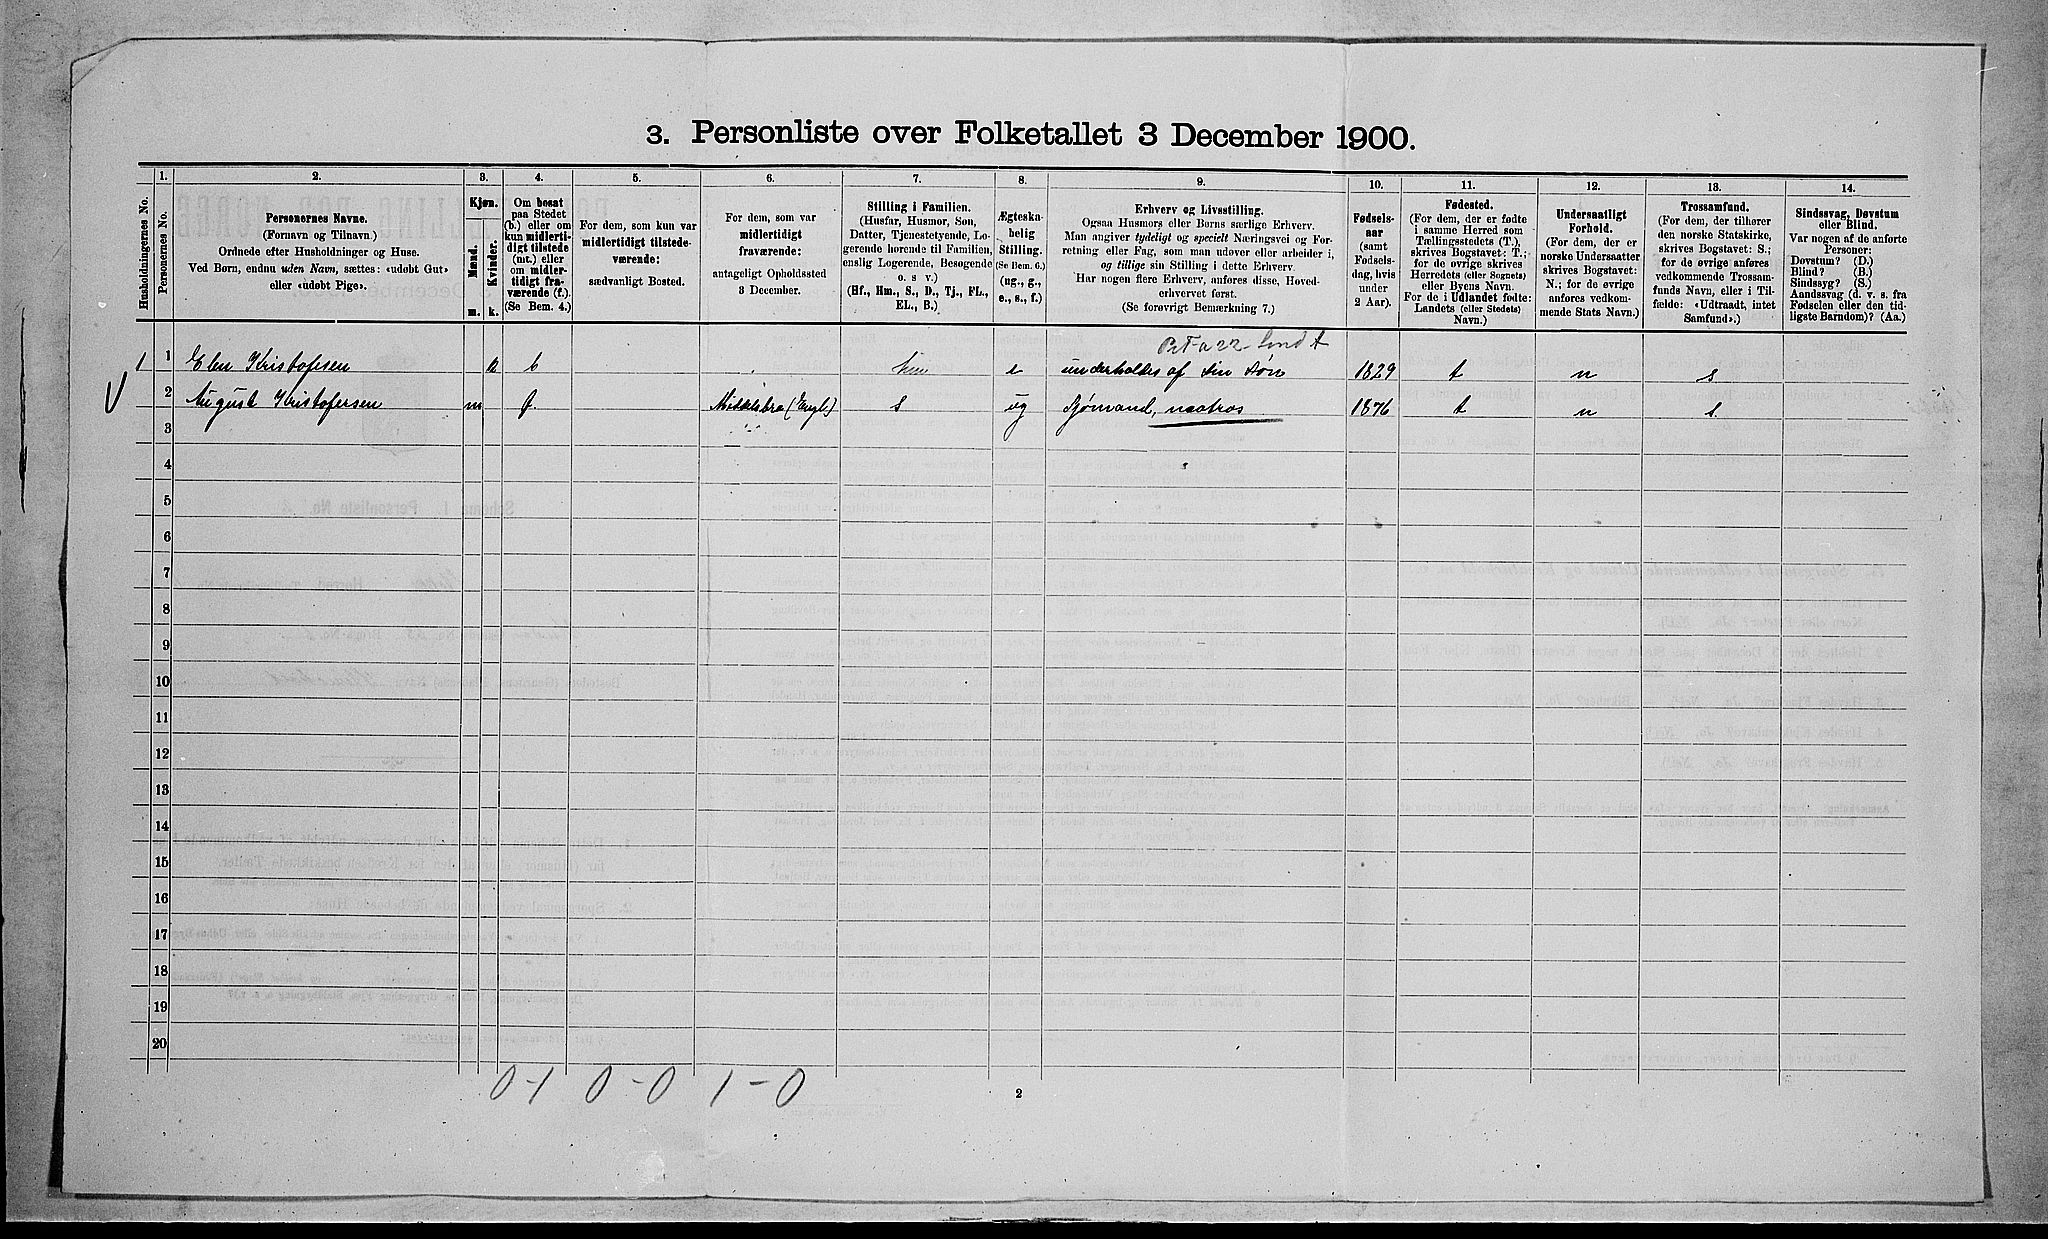 3. Personliste over Folketallet 3 December 1900.
Husholdningernes No.
1.
Personernes No.
2.
Personernes Navne.
(Fornavn og Tilnavn.)
Ordnede efter Husholdninger og Huse.
Ved Børn, endnu uden Navn, sættes: «udøbt Gut»
eller «udøbt Pige».
3.
Kjøn.
Mænd.
Kvinder.
m.
k.
4.
Om bosat
paa Stedet
(b.) eller om
kun midlerti-
digt tilstede
(mt.) eller
om midler-
tidigt fra-
værende (f.)
(Se Bem. 4.)
5.
For dem, som kun var
midlertidigt tilstede-
værende:
sædvanligt Bosted.
6.
For dem, som var
midlertidigt
fraværende:
antageligt Opholdssted
3 December.
7.
Stilling i Familien.
(Husfar, Husmor, Søn,
Datter, Tjenestetyende, Lo-
gerende hørende til Familien,
enslig Logerende, Besøgende
o. s v.)
(Hf., Hm., S., D., Tj., FL.,
EL., B.)
8.
Ægteska-
belig
Stilling.
(Se Bem. 6.)
(ug., g.,
e., s., f.)
9.
Erhverv og Livsstilling.
Ogsaa Husmors eller Børns særlige Erhverv.
Man angiver tydeligt og specielt Næringsvei og For-
retning eller Fag, som man udøver eller arbeider i,
og tillige sin Stilling i dette Erhverv.
Har nogen flere Erhverv, anføres disse, Hoved-
erhvervet først.
(Se forøvrigt Bemærkning 7.)
10.
Fødsels-
aar
(samt
Fødsels-
dag, hvis
under
2 Aar).
11.
Fødested.
(For dem, der er fødte
i samme Herred som
Tællingsstedets (T.),
skrives Bogstavet: T.;
for de øvrige skrives
Herredets (eller Sognets)
eller Byens Navn.
For de i Udlandet fødte:
Landets (eller Stedets)
Navn.)
12.
Undersaatligt
Forhold.
(For dem, der er
norske Undersaatter
skrives Bogstavet:
N.; for de øvrige
anføres vedkom-
mende Stats Navn.)
13.
Trossamfund.
(For dem, der tilhører
den norske Statskirke,
skrives Bogstavet: S.;
for de øvrige anføres
vedkommende Trossam-
funds Navn, eller i Til-
fælde: «Udtraadt, intet
Samfund».)
14.
Sindssvag, Døvstum
eller Blind.
Var nogen af de anførte
Personer:
Døvstum? (D.)
Blind? (B.)
Sindssyg? (S.)
Aandssvag (d. v. s. fra
Fødselen eller den tid-
ligste Barndom)? (Aa.)
1 1 Elen Kristofersen k b hm e underholdes af sin Søn 1829 t n s
V 2 August Kristofersen m f. Middelsbro (Engl.) s ug Sjømand, matros 1876 t n s.
3
4
5
6
7
8
9
10
11
12
13
14
15
16
17
18
19
20
0-1 0-0 1-0
2